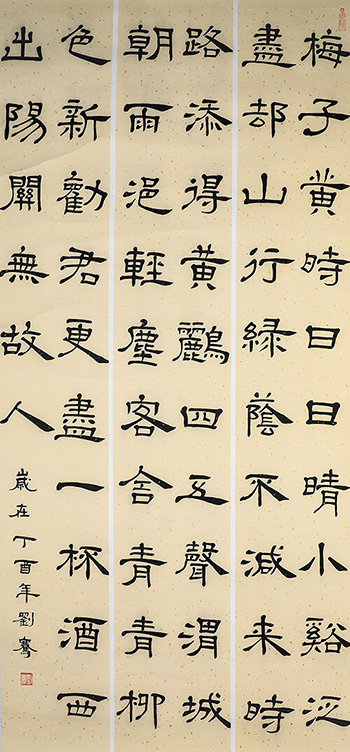 梅子黄時日日晴小谿泛
盡却山行緑蔭不減来時
路添得黄鸝四五聲渭城
朝雨浥輕塵客舍青青柳
色新勸君更盡一杯酒西
出陽關無故人
歲在丁酉年劉騫